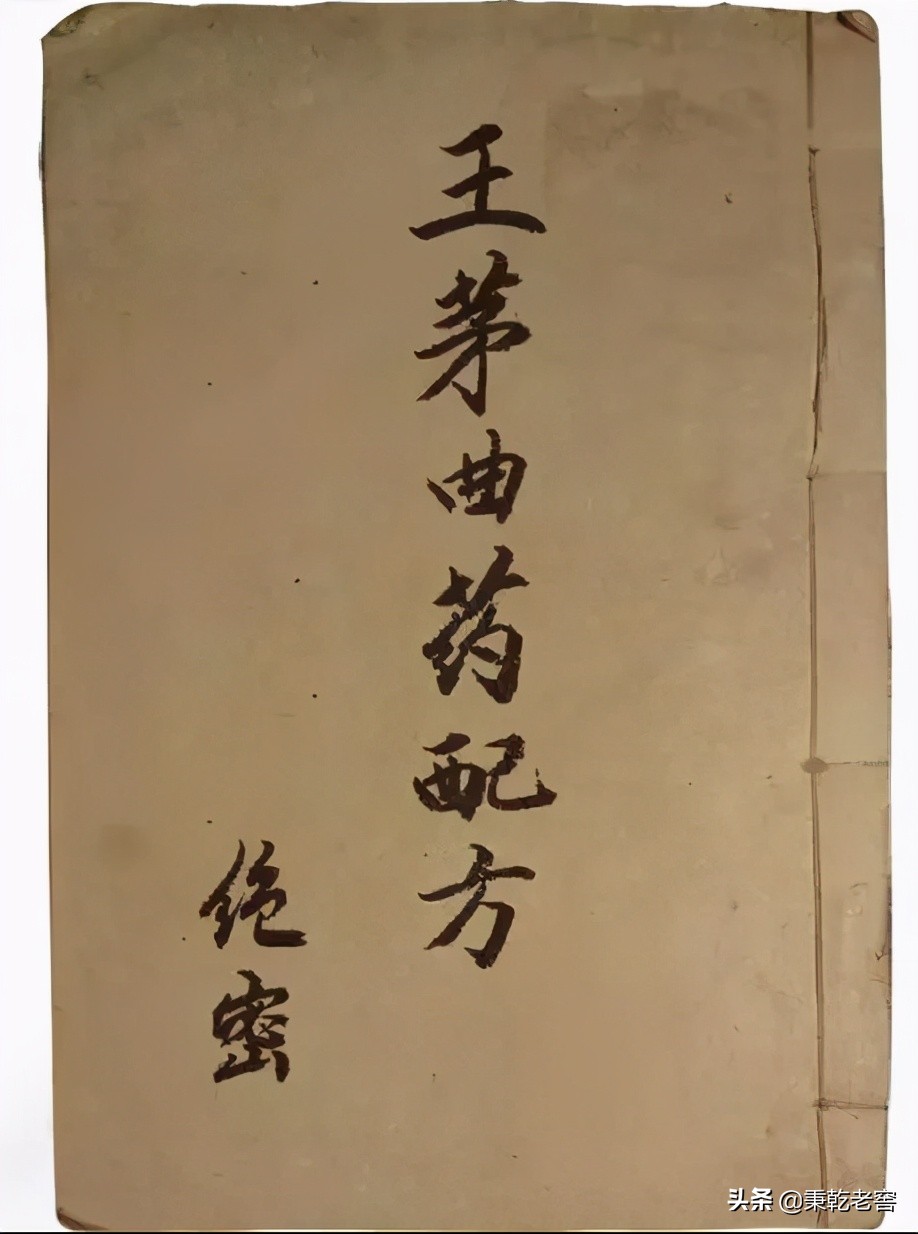 王茅曲药配方
绝密
头条 @秉乾老窖